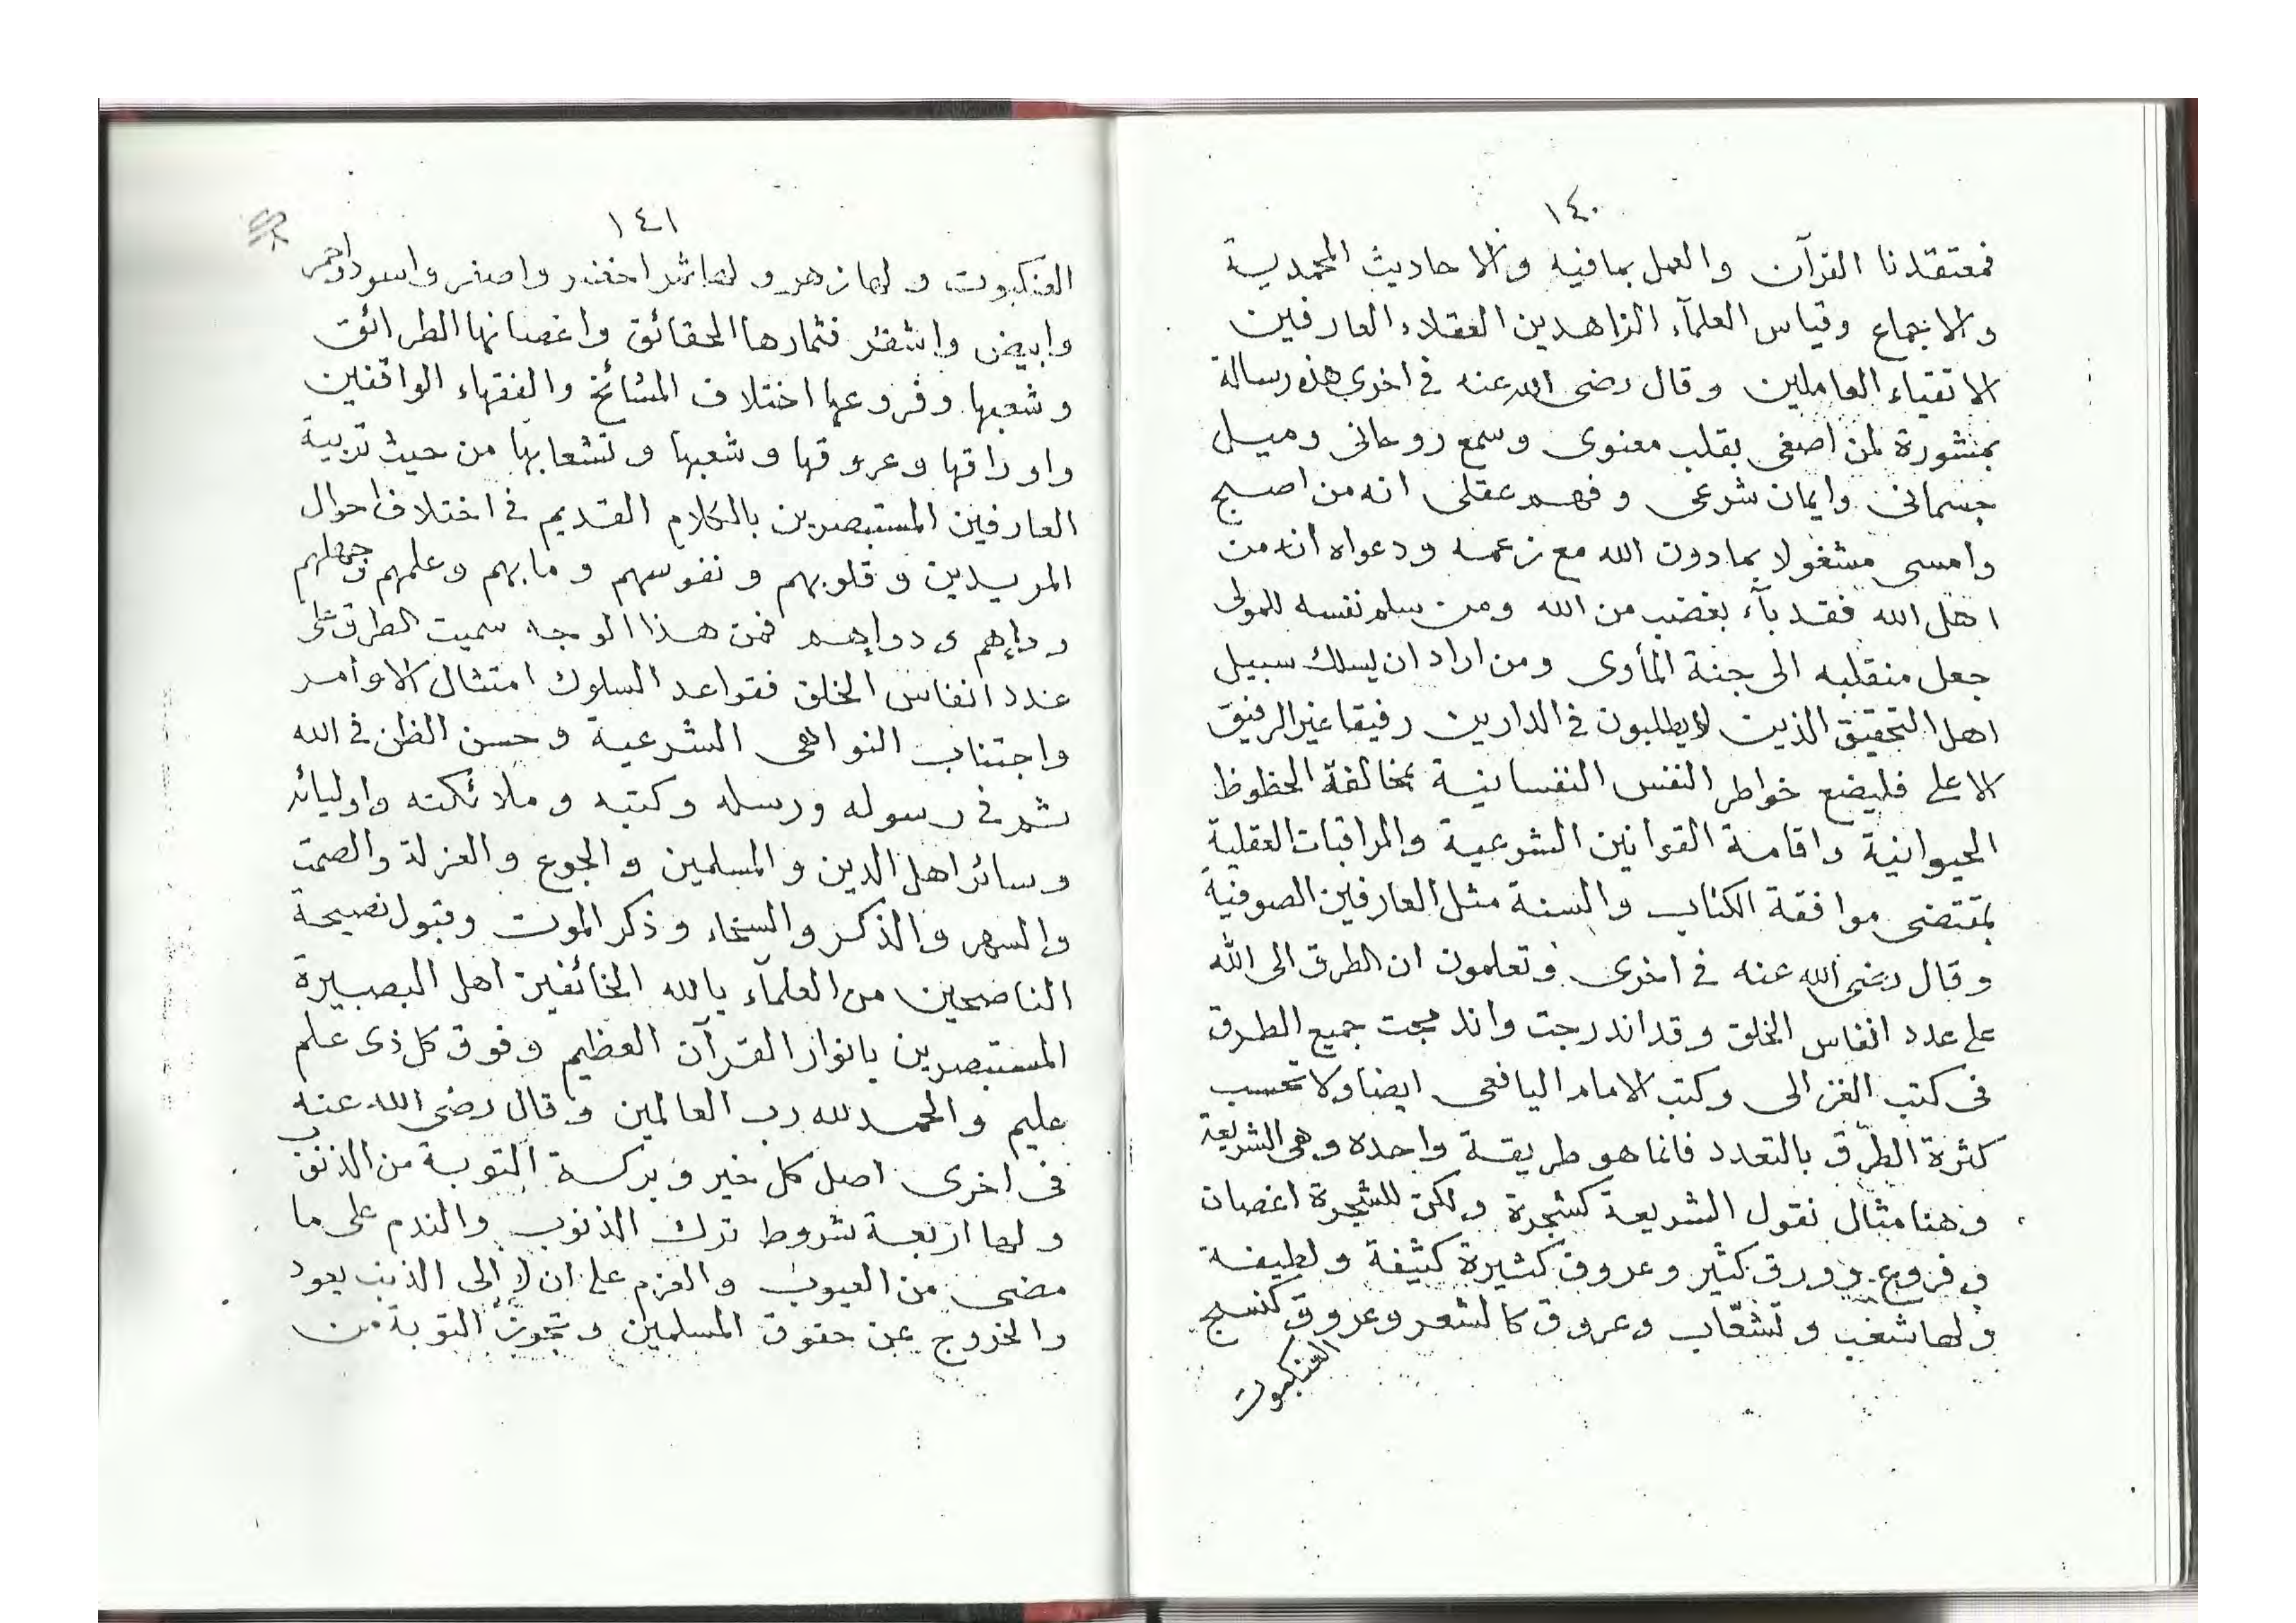 ١٤٠
فمعتقدنا القرآن والعمل بما فيه والاحاديث المحمدية
والاجماع وقياس العلمآء الزاهدين العقلاء العارفين
الاتقياء العاملين وقال رضى الله عنه فى اخرى هذه رسالة
بمنثورة لمن اصغى بقلب معنوى وسمع روحانى وميل
جسمانى وايمان شرعى وفهم عقلى انه من اصبح
وامسى مشغولا بما دون الله مع زعمه ودعواه انه من
اهل الله فقد بآء بغضب من الله ومن سلم نفسه للمولى
جعل منقلبه الى جنة المأوى ومن اراد ان يسلك سبيل
اهل التحقيق الذين لا يطلبون فى الدارين رفيقا غير الرفيق
الاعلى فليضع خواطر النفس النفسانية بمخالفة الحظوظ
الحيوانية واقامة القوانين الشرعية والمراقبات العقلية
بمقتضى موافقة الكتاب والسنة مثل العارفين الصوفية
وقال رضى الله عنه فى اخرى وتعلمون ان الطرق الى الله
على عدد انفاس الخلق وقد اندرجت واندمجت جميع الطرق
فى كتب الغزالى وكتب الامام اليافعى ايضا ولا تحسب
كثرة الطرق بالتعدد فانما هو طريقة واحده وهى الشريعة
وهنا مثال نقول الشريعة كشجرة ولكن للشجرة اغصان
وفروع وورق كثير وعروق كثيرة كثيفة ولطيفة
ولها شعب وتشعّاب وعروق كالشعر وعروق كنسج
العنكبوت
١٤١
العنكبوت ولها زهر ولها ثمر اخضر واصفر واسود واحمر
وابيض واشقر فثمارها الحقائق واغصانها الطرائق
وشعبها وفروعها اختلاف المشائخ والفقهاء الواقفين
واوراقها وعروقها وشعبها وتشعابها من حيث تربية
العارفين المستبصرين بالكلام القديم فى اختلاف احوال
المريدين وقلوبهم ونفوسهم وما بهم وعلمهم وجهلهم
وداءهم ودواءهم فمن هذا الوجه سميت الطرق على
عدد انفاس الخلق فقواعد السلوك امتثال الاوامر
واجتناب النواهى الشرعية وحسن الظن فى الله
ثم فى رسوله ورسله وكتبه وملائكته واوليائه
وسائر اهل الدين والمسلمين والجوع والعزلة والصمت
والسهر والذكر والسخاء وذكر الموت وقبول نصيحة
الناصحين من العلمآء بالله الخائفين اهل البصيرة
المستبصرين بانوار القرآن العظيم وفوق كل ذى علم
عليم والحمد لله رب العالمين وقال رضى الله عنه
فى اخرى اصل كل خير وبركة التوبة من الذنوب
ولها اربعة شروط ترك الذنوب والندم على ما
مضى من العيوب والعزم على ان لا إلى الذنب يعود
والخروج عن حقوق المسلمين وتجوز التوبة من